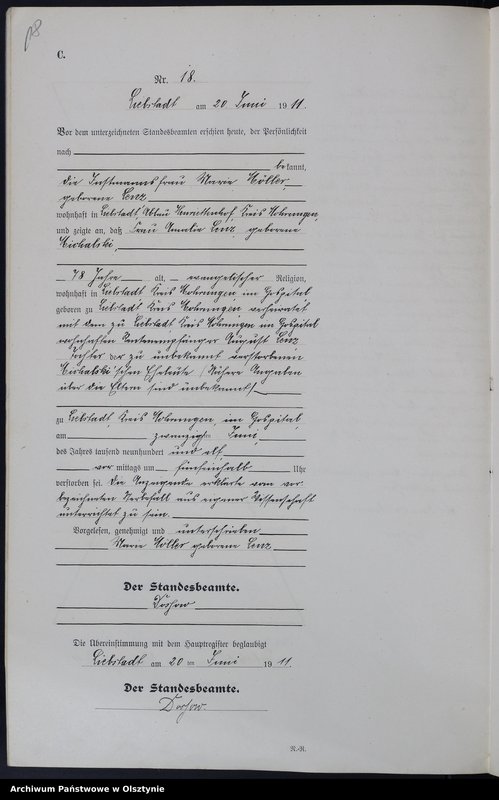 18
C.
Nr. 18.
Liebstadt am 20 Juni 1911.
Vor dem unterzeichneten Standesbeamten erschien heute, der Persönlichkeit
nach
bekannt,
die Instmannsfrau Marie Möller,
geborene Lenz
wohnhaft in Liebstadt, Abbau Henriettenhof, Kreis Mohrungen,
und zeigte an, daß Frau Amalie Lenz, geborene
Michalski,
78 Jahre alt, evangelischer Religion,
wohnhaft in Liebstadt Kreis Mohrungen im Hospital
geboren zu Liebstadt Kreis Mohrungen verheiratet
mit dem zu Liebstadt Kreis Mohrungen im Hospital
wohnhaften Rentenempfänger August Lenz
Tochter der zu unbekannt verstorbenen
Michalski'schen Eheleute (Nähere Angaben
über die Eltern sind unbekannt)
zu Liebstadt, Kreis Mohrungen, im Hospital,
am zwanzigsten Juni,
des Jahres tausend neunhundert und elf,
vormittags um fünfeinhalb Uhr
verstorben sei. Die Anzeigende erklärte vom vor-
bezeichneten Sterbefall aus eigener Wissenschaft
unterrichtet zu sein.
Vorgelesen, genehmigt und unterschrieben
Marie Möller geborene Lenz
Der Standesbeamte.
Die Übereinstimmung mit dem Hauptregister beglaubigt
Liebstadt am 20 ten Juni 1911.
Der Standesbeamte.
N.-R.
Archiwum Państwowe w Olsztynie